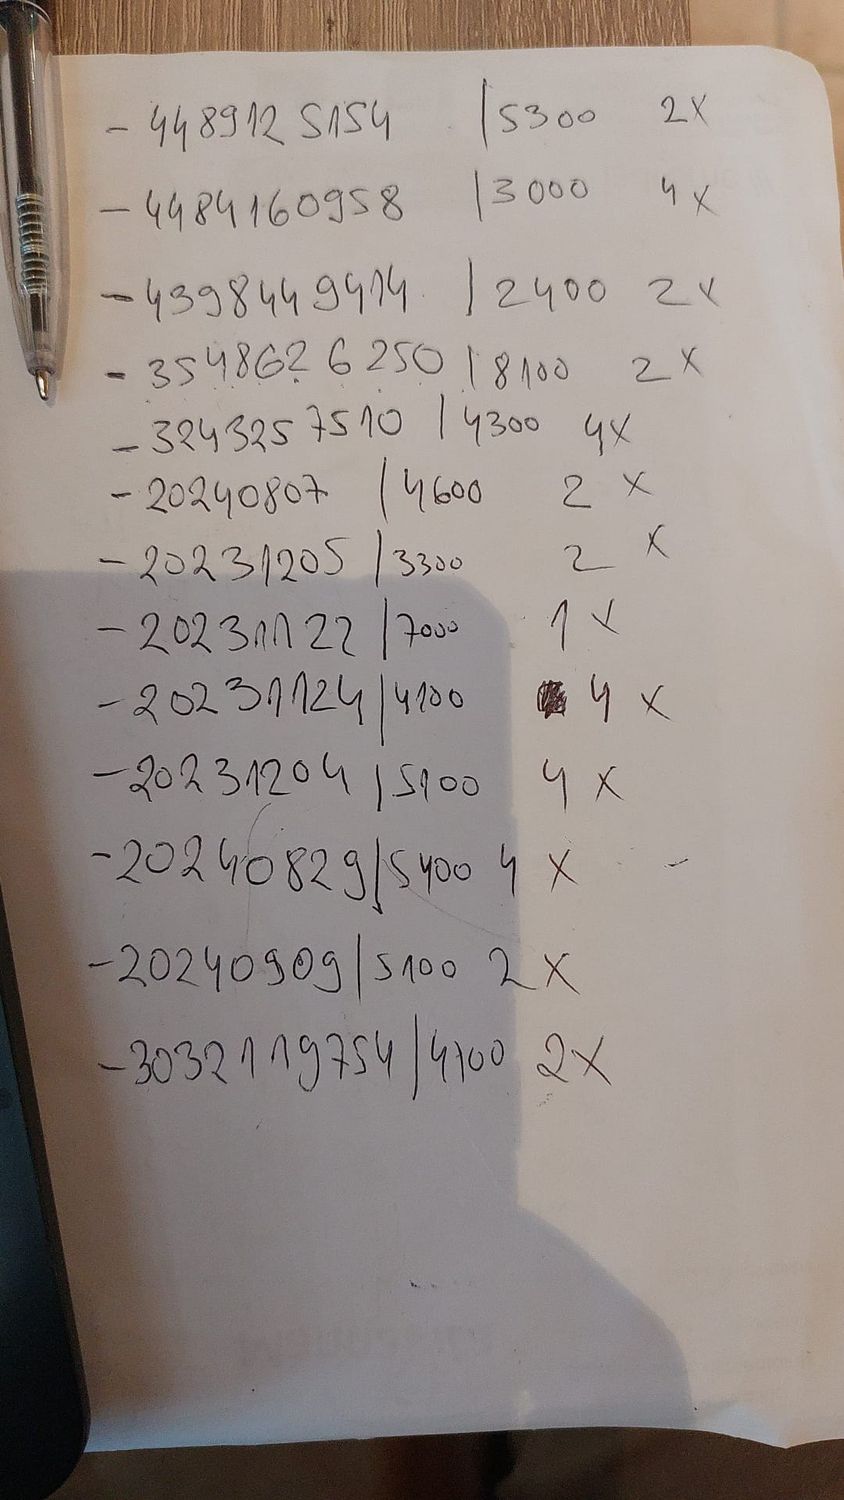 - 4489125154 | 5300 2x
- 4484160958 | 3000 4x
- 4398449414 | 2400 2x
- 3548626250 | 8100 2x
- 3243257510 | 4300 4x
- 20240807 | 4600 2x
- 20231205 | 3300 2x
- 20231122 | 7000 1x
- 20231124 | 4100 4x
- 20231204 | 5100 4x
- 20240829 | 5400 4x
- 20240909 | 5100 2x
- 3032119754 | 4100 2x